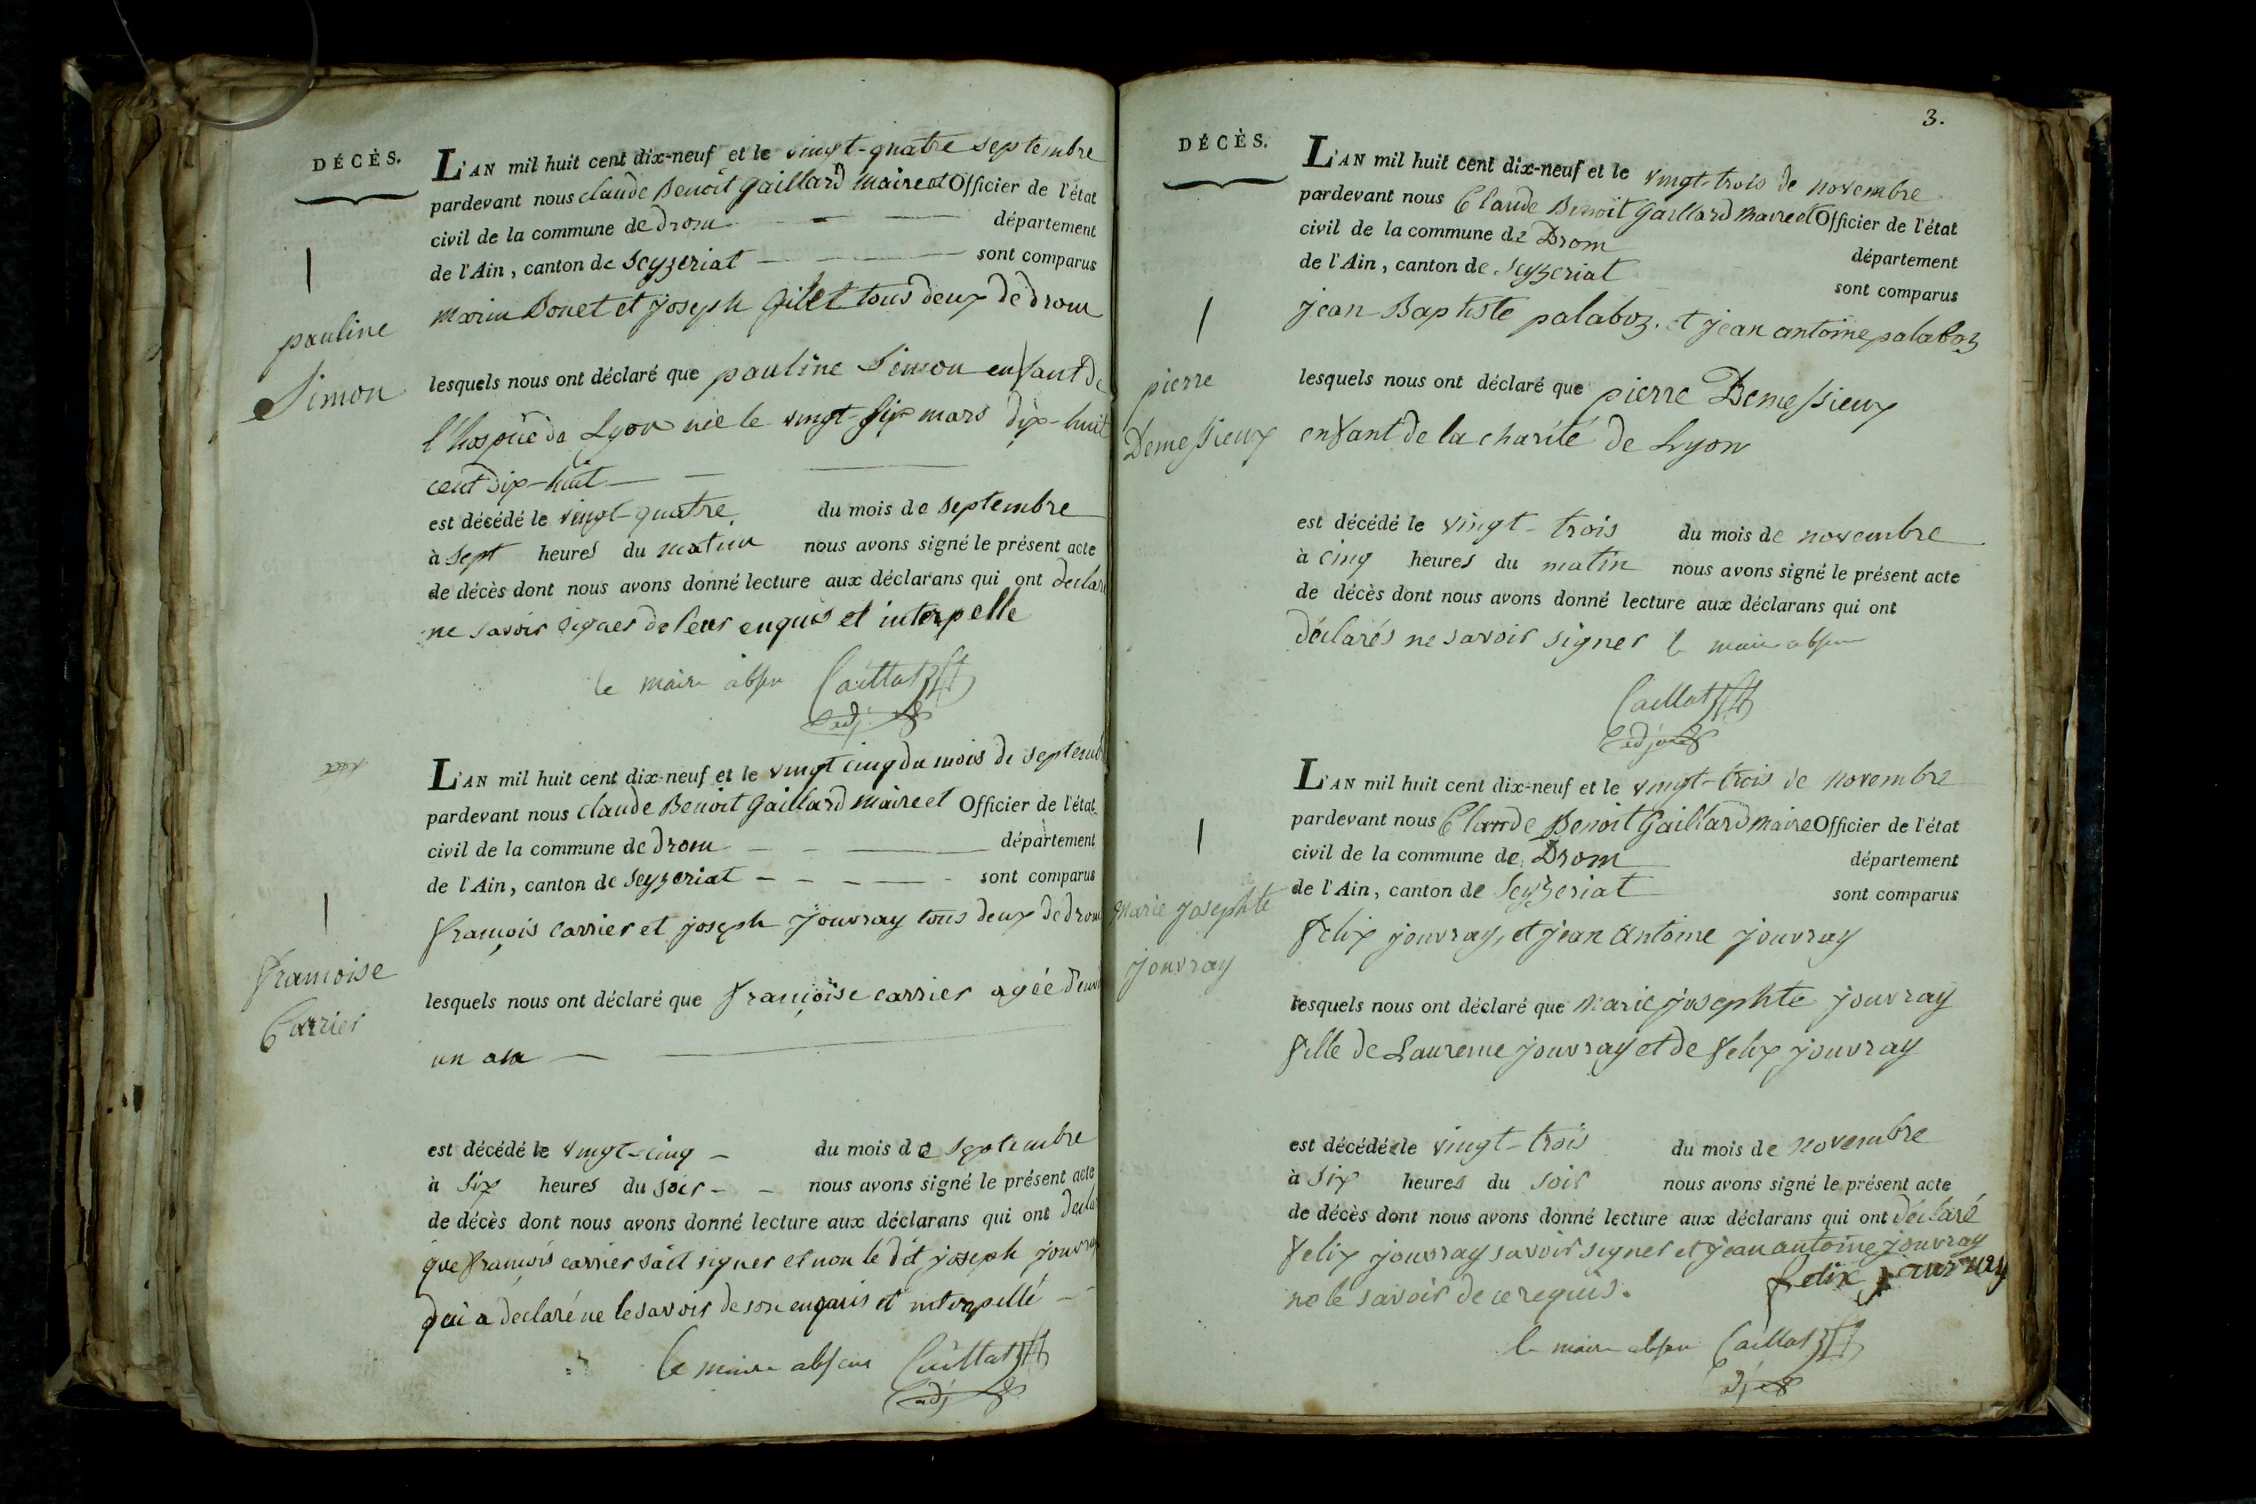 DÉCÈS.
L'AN mil huit cent dix-neuf et le vingt-quatre septembre
pardevant nous claude Benoît gaillard maire et Officier de l'état
civil de la commune de drom département
de l'Ain, canton de Seyzeriat sont comparus
marin Donet et joseph gilet tous deux de drom
pauline
Simon
lesquels nous ont déclaré que pauline Simon enfant de
l'hospice de Lyon née le vingt-six mars dix-huit
cent dix-huit
est décédé le vingt-quatre du mois de septembre
à sept heures du matin nous avons signé le présent acte
de décès dont nous avons donné lecture aux déclarans qui ont déclaré
ne savoir signer de leur enquis et interpellé
le maire absen Caillat
adj
L'AN mil huit cent dix-neuf et le vingt cinq du mois de septemb
pardevant nous claude Benoit Gaillard maire et Officier de l'état
civil de la commune de drom département
de l'Ain, canton de Seyzeriat sont comparus
françois carrier et joseph jouvray tous deux de drom
françoise
Carrier
lesquels nous ont déclaré que françoise carrier agée d'envi
un an
est décédé le vingt-cinq du mois de septembre
à six heures du soir nous avons signé le présent acte
de décès dont nous avons donné lecture aux déclarans qui ont décla
que françois carrier sait signer et non le dit joseph jouvray
qui a declaré ne le savoir de son enquis et interpellé
le maire absent Caillat
adj
3.
DÉCÈS.
L'AN mil huit cent dix-neuf et le vingt-trois de novembre
pardevant nous Claude Benoit Gaillard maire et Officier de l'état
civil de la commune de Drom département
de l'Ain, canton de Seyzeriat sont comparus
jean Baptiste palaboz. et jean antoine palaboz
pierre
Demessieux
lesquels nous ont déclaré que pierre Demessieux
enfant de la charité de Lyon
est décédé le vingt-trois du mois de novembre
à cinq heures du matin nous avons signé le présent acte
de décès dont nous avons donné lecture aux déclarans qui ont
déclarés ne savoir signer le maire absen
Caillat
adjoint
L'AN mil huit cent dix-neuf et le vingt-trois de novembre
pardevant nous Claude Benoit Gaillard maire Officier de l'état
civil de la commune de Drom département
de l'Ain, canton de Seyzeriat sont comparus
felix jouvray, et jean antoine jouvray
marie josephte
jouvray
lesquels nous ont déclaré que marie josephte jouvray
fille de Laurence jouvray et de felix jouvray
est décédée le vingt-trois du mois de novembre
à six heures du soir nous avons signé le présent acte
de décès dont nous avons donné lecture aux déclarans qui ont déclaré
felix jouvray savoir signer et jean antoine jouvray
ne le savoir de ce requis. felix jouvray
le maire absen Caillat
adj